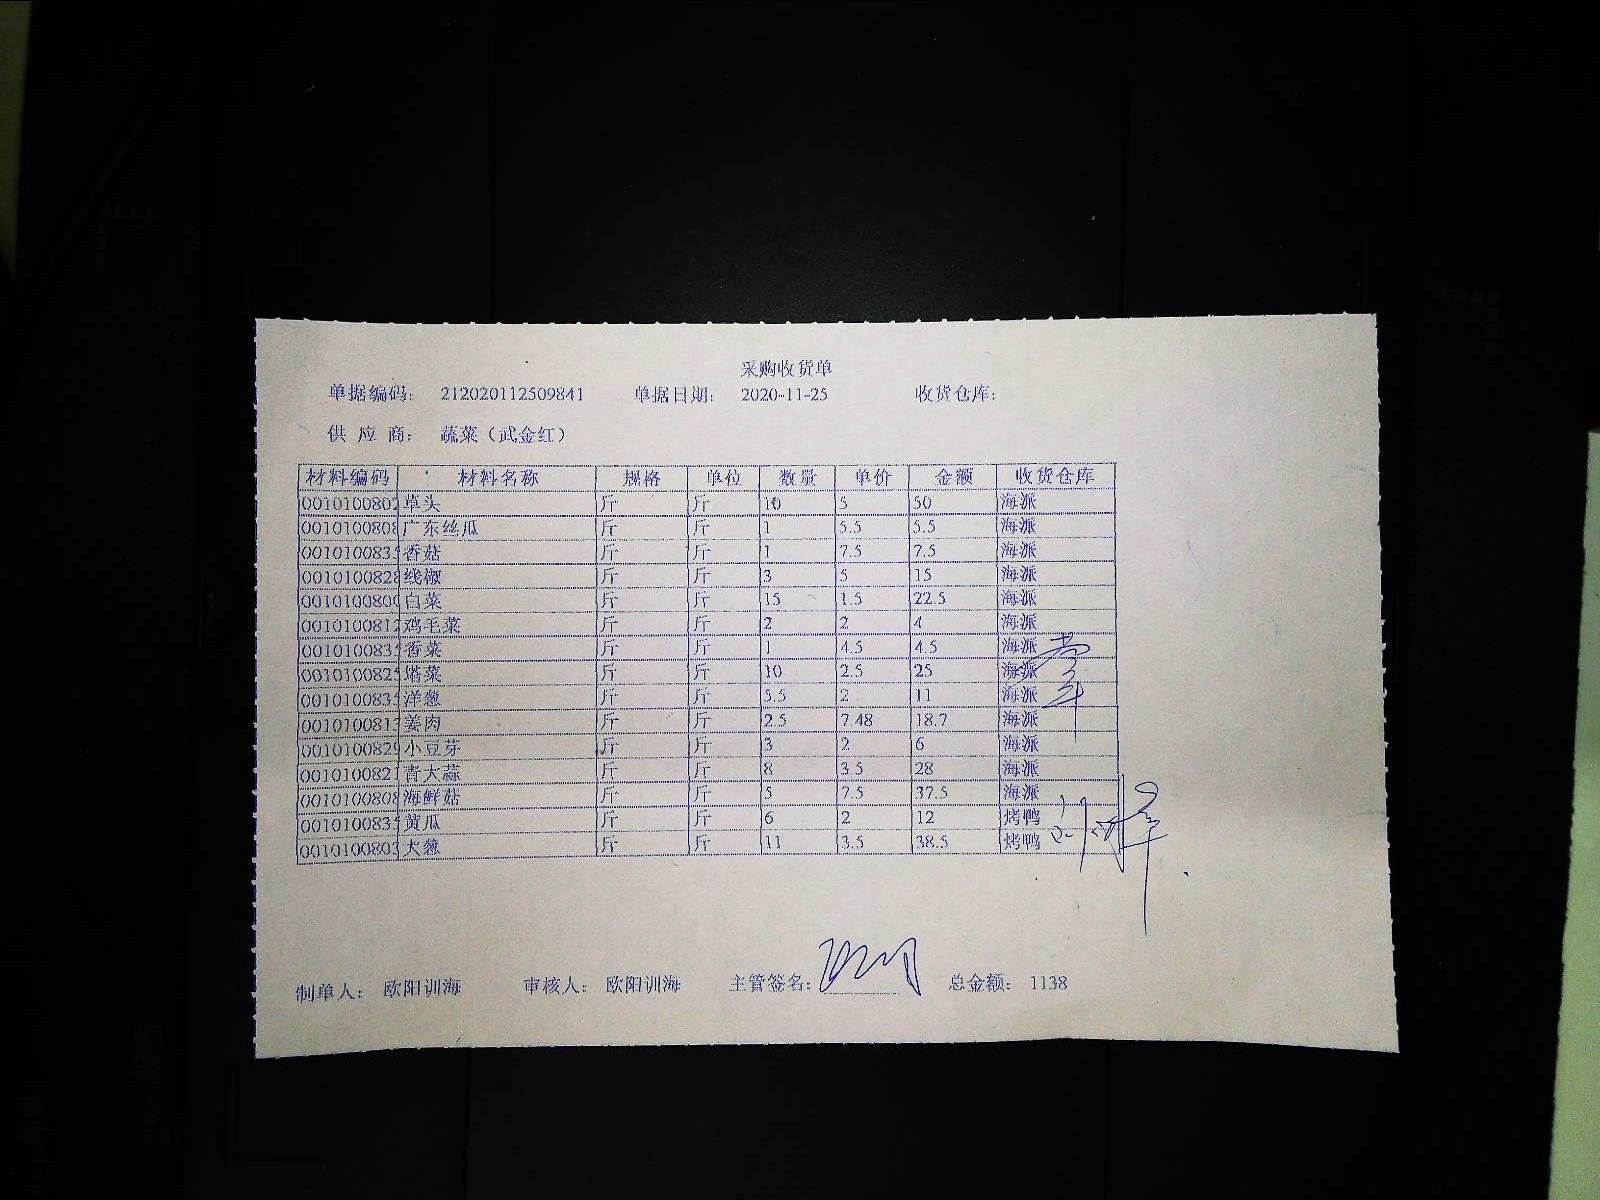 采购收货单
单据编码： 212020112509841 单据日期： 2020-11-25 收货仓库：
供 应 商： 蔬菜（武金红）
材料编码 材料名称 规格 单位 数量 单价 金额 收货仓库
0010100802 草头 斤 斤 10 5 50 海派
0010100808 广东丝瓜 斤 斤 1 5.5 5.5 海派
001010083 香菇 斤 斤 1 7.5 7.5 海派
0010100828 线椒 斤 斤 3 5 15 海派
001010080 白菜 斤 斤 15 1.5 22.5 海派
0010100812 鸡毛菜 斤 斤 2 2 4 海派
001010083 香菜 斤 斤 1 4.5 4.5 海派
001010082 塔菜 斤 斤 10 2.5 25 海派
001010083 洋葱 斤 斤 5.5 2 11 海派
001010081 姜肉 斤 斤 2.5 7.48 18.7 海派
0010100829 小豆芽 斤 斤 3 2 6 海派
001010082 青大蒜 斤 斤 8 3.5 28 海派
0010100808 海鲜菇 斤 斤 5 7.5 37.5 海派
001010083 黄瓜 斤 斤 6 2 12 烤鸭
001010080 大葱 斤 斤 11 3.5 38.5 烤鸭
制单人： 欧阳训海 审核人： 欧阳训海 主管签名： 总金额： 1138